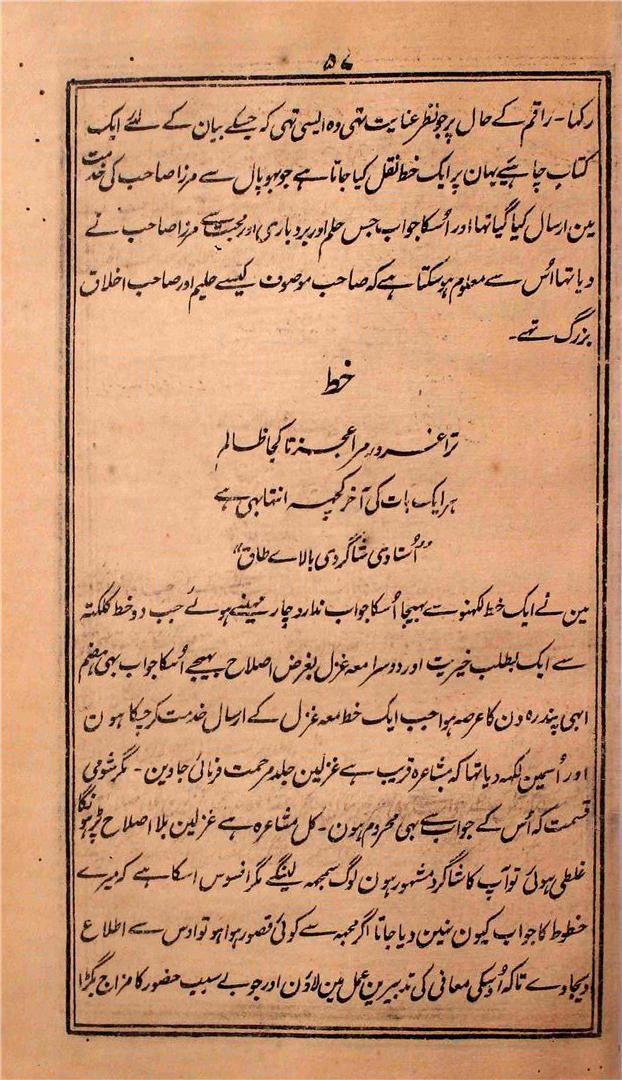 ۵۷
رکہا۔ راقم کے حال پر جو نظر عنایت تہی وہ ایسی تہی کہ جسکے بیان کے لئے ایک
کتاب چاہیے یہان پر ایک خط نقل کیا جاتا ہے جو بہوپال سے مرزا صاحب کی خدمت
مین ارسال کیا گیا تہا اور اُسکا جواب جس حلم اور بردباری اور محبت سے مرزا صاحب نے
دیا تہا اُس سے معلوم ہو سکتا ہے کہ صاحب موصوف کیسے حلیم اور صاحب اخلاق
بزرگ تہے۔
خط
ترا غرور مرا عجز تا کجا ظالم
ہر ایک بات کی آخر کچہہ انتہا بہی ہے
"اُستادی شاگردی بالاے طاق"
مین نے ایک خط لکہنو سے بہیجا اُسکا جواب ندارد چار مہینے ہوئے جب دو خط کلکتہ
سے ایک بطلب خیریت اور دوسرا معہ غزل بغرض اصلاح بہیجے اُسکا جواب بہی ہضم
ابہی پندرہ دن کا عرصہ ہوا جب ایک خط معہ غزل کے ارسال خدمت کر چکا ہون
اور اُسمین لکہہ دیا تہا کہ مشاعرہ قریب ہے غزلین جلد مرحمت فرمائی جاوین۔ مگر شومی
قسمت کہ اُس کے جواب سے بہی محروم ہون۔ کل مشاعرہ ہے غزلین بلا اصلاح پڑہونگا
غلطی ہوئی تو آپ کا شاگرد مشہور ہون لوگ سمجہہ لینگے مگر افسوس اسکا ہے کہ میرے
خطوط کا جواب کیون نہین دیا جاتا اگر مجہہ سے کوئی قصور ہوا ہو تو اوس سے اطلاع
دیجاوے تاکہ اُوسکی معافی کی تدبیرین عمل مین لاؤن اور جو بے سبب حضور کا مزاج بگڑا